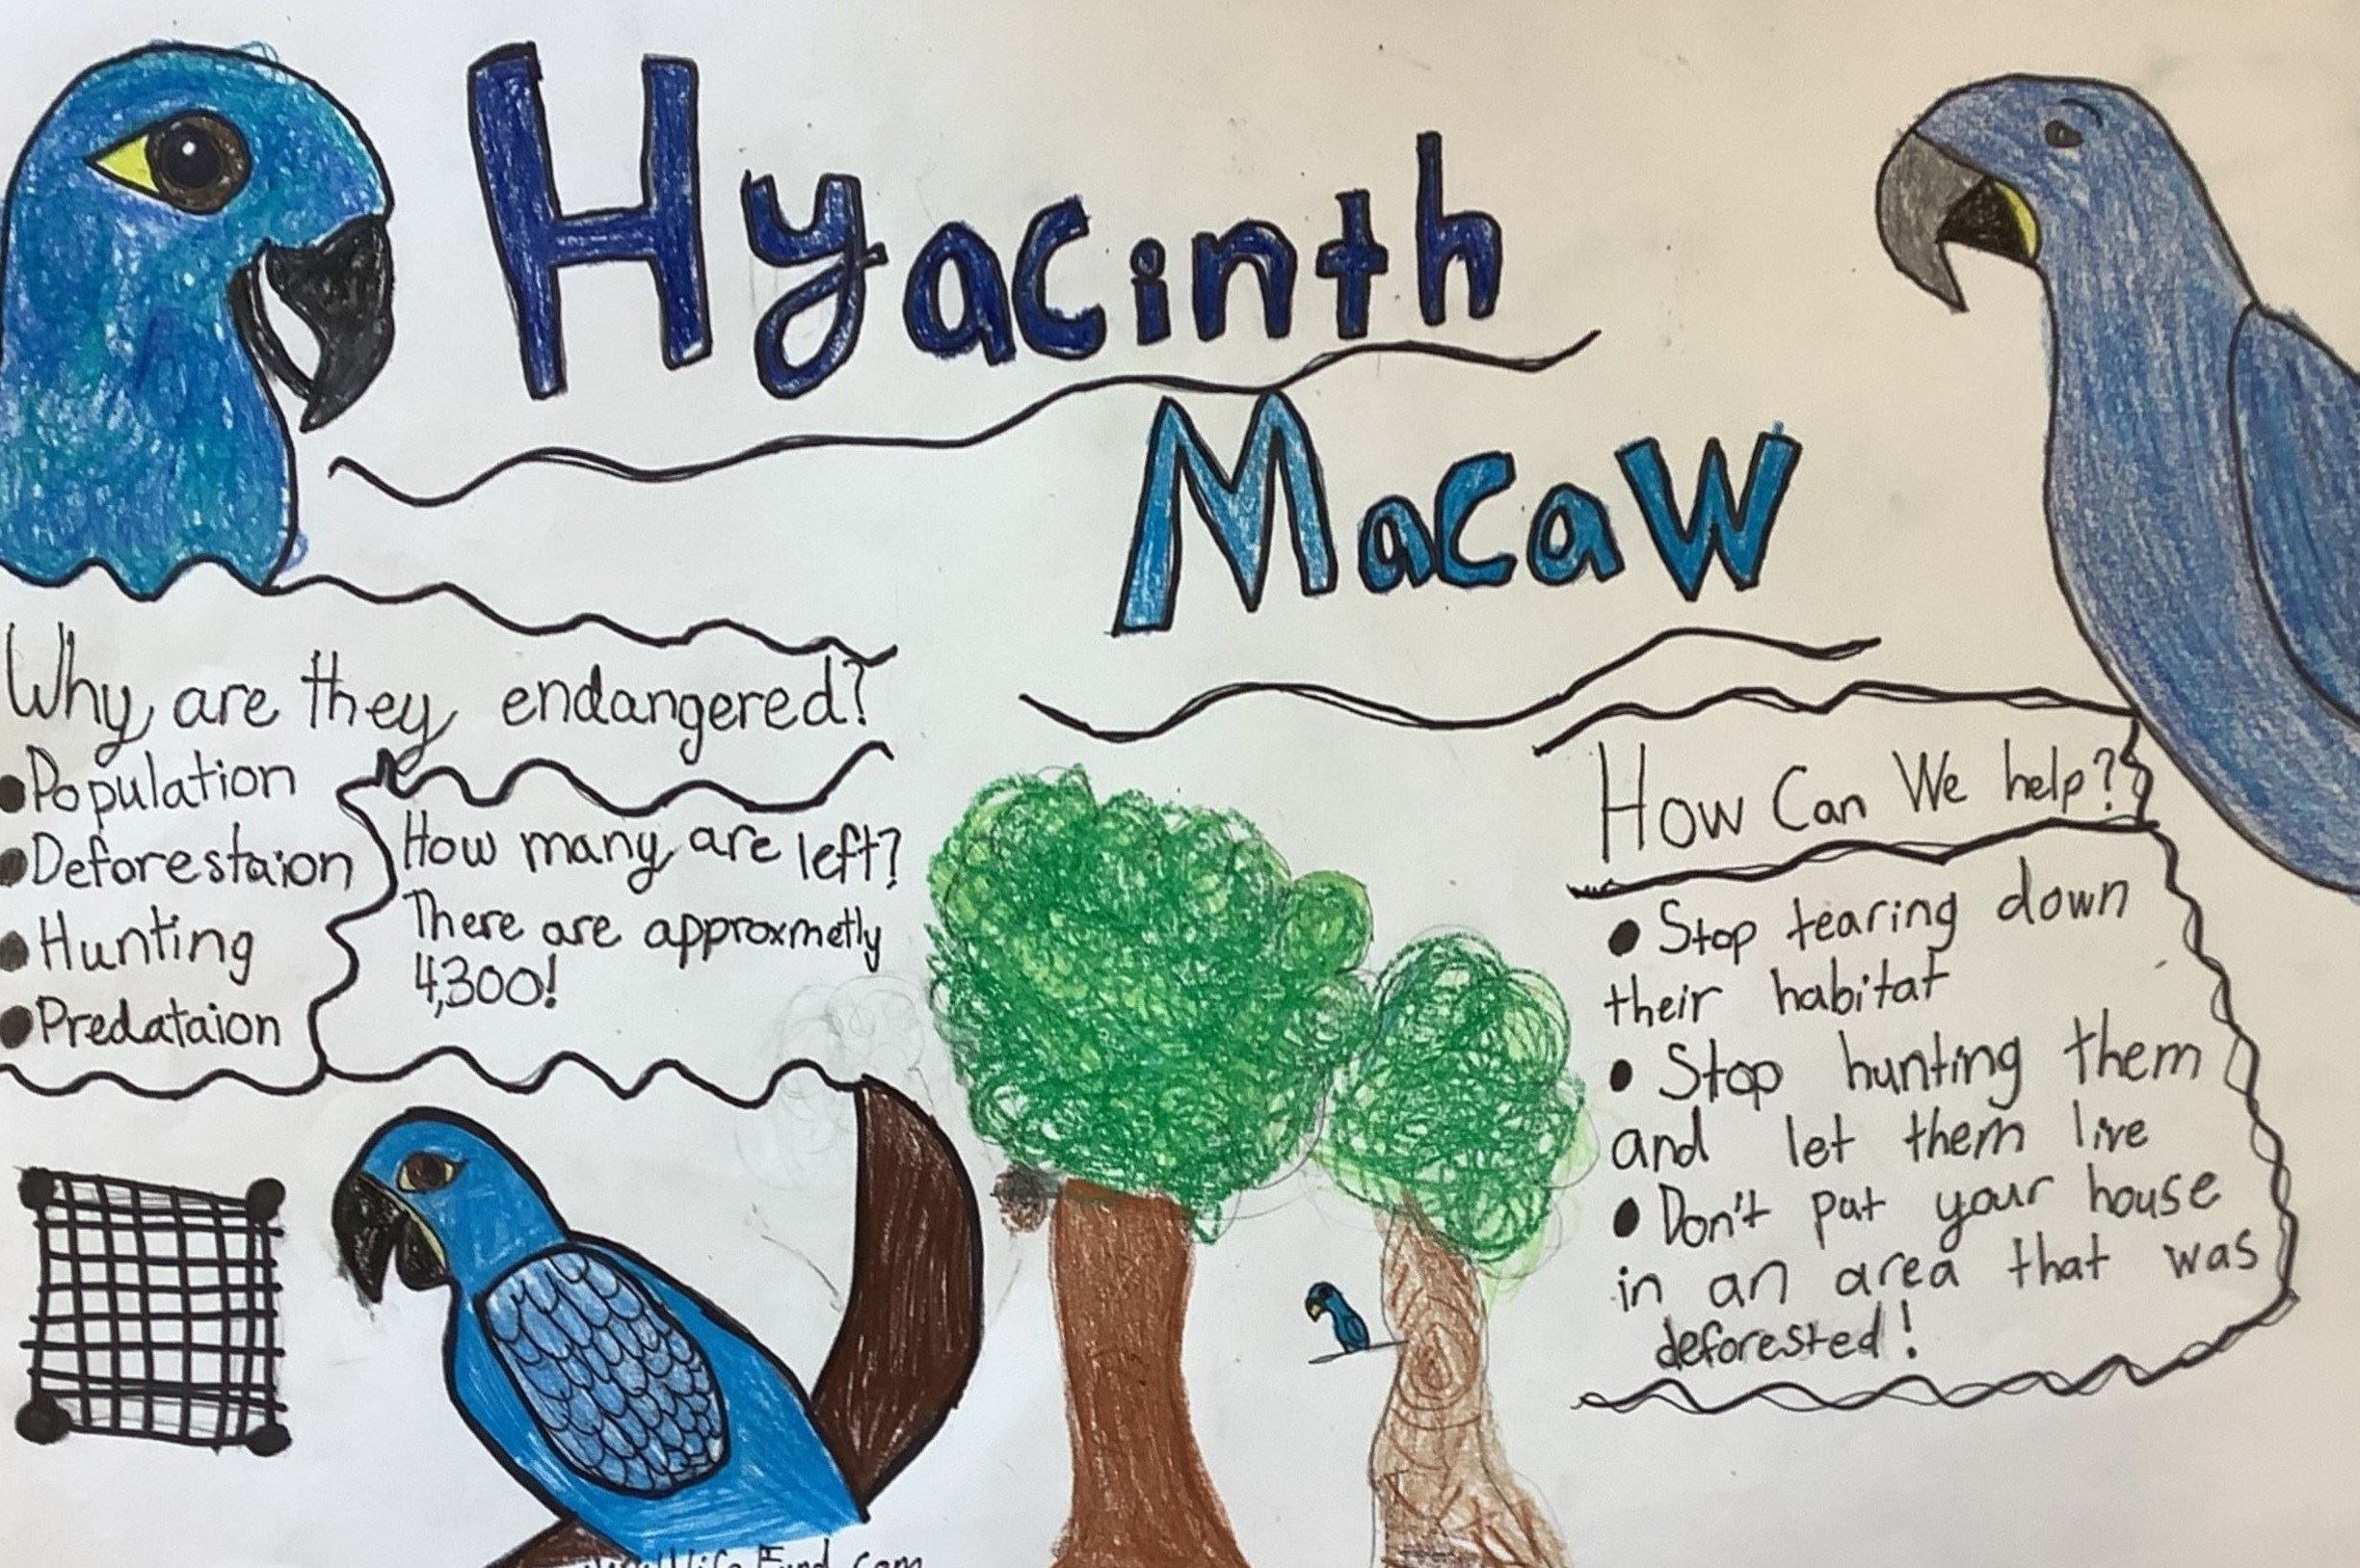 Hyacinth
Macaw
Why are they endangered?
•Population
•Deforestaion
•Hunting
•Predataion
How many are left?
There are approxmetly
4,300!
How Can We help?
• Stop tearing down
their habitat
• Stop hunting them
and let them live
• Don't put your house
in an area that was
deforested!
Fund.com